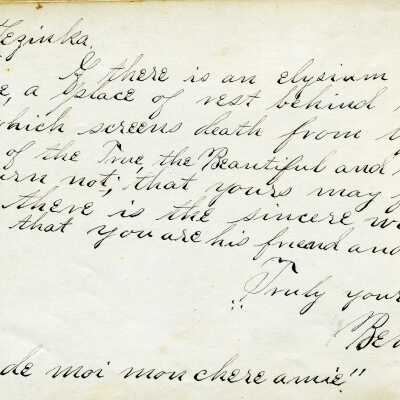 Tezinka.
If there is an elysium
e, a place of rest behind
which screens death from
of the True, the Beautiful and
urn not; that yours may
there is the sincere w
that you are his friend and
Truly your
Be
de moi mon chere amie."